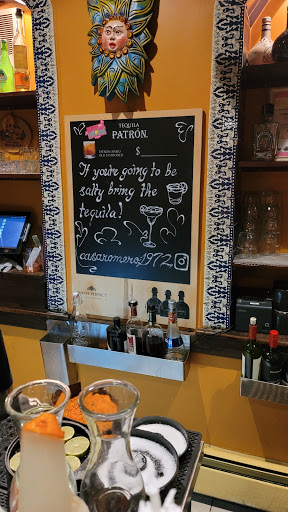 TEQUILA
PATRÓN.
$
If you're going to be
salty bring the
tequila!
casaromero1972